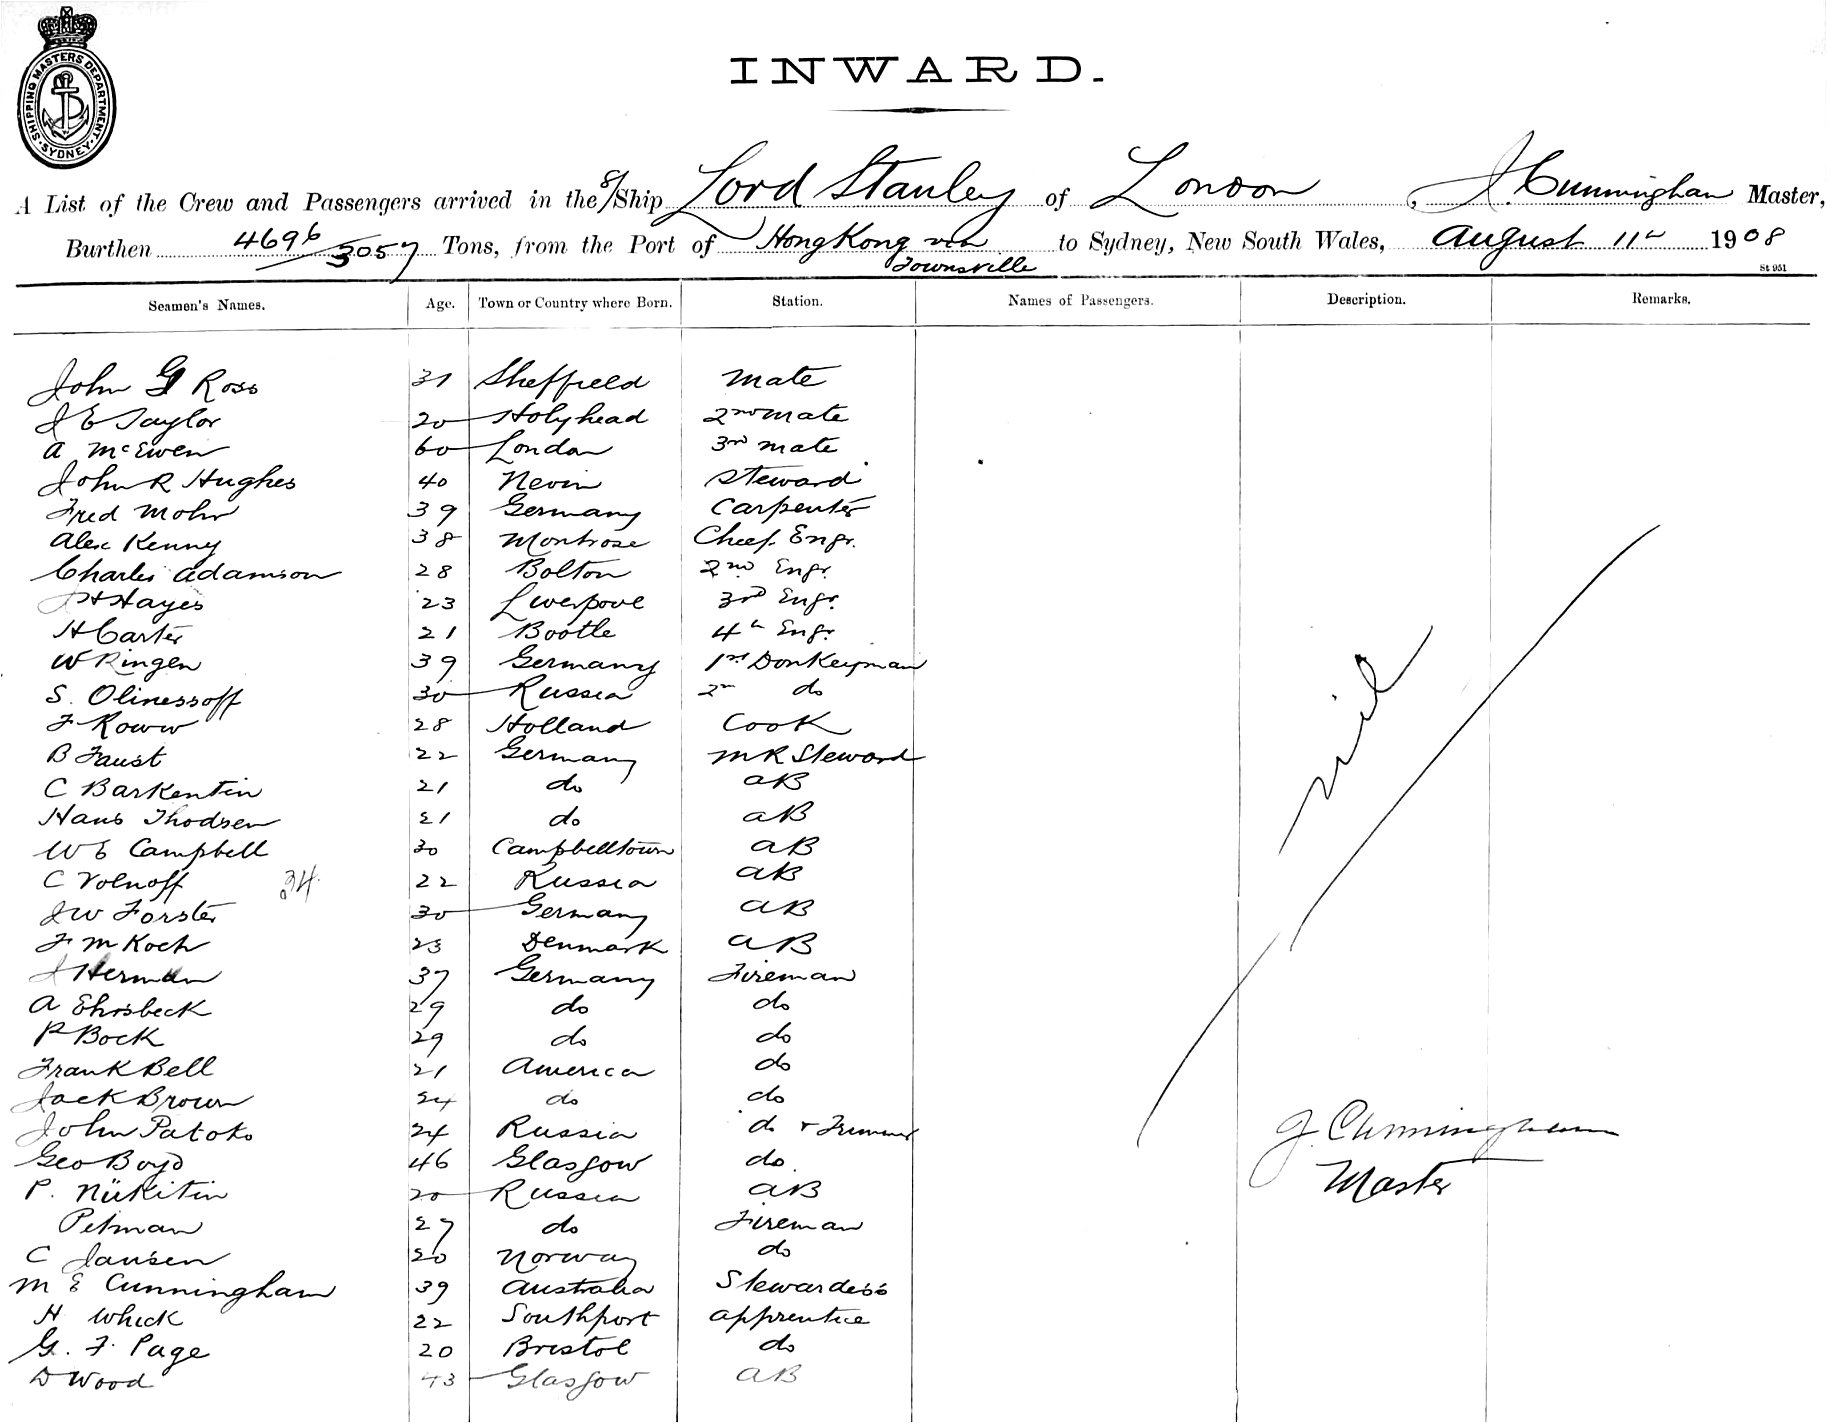 SHIPPING MASTERS DEPARTMENT · SYDNEY ·
INWARD.
A List of the Crew and Passengers arrived in the S/Ship Lord Stanley of London, J. Cunningham Master,
Burthen 4696/3057 Tons, from the Port of Hong Kong via Townsville to Sydney, New South Wales, August 11th 1908
St 951
Seamen's Names. Age. Town or Country where Born. Station. Names of Passengers. Description. Remarks.
John G Ross 31 Sheffield Mate
J E Taylor 20 Holyhead 2nd Mate
A McEwen 60 London 3rd Mate
John R Hughes 40 Nevin Steward
Fred Mohr 39 Germany Carpenter
Alex Kenny 38 Montrose Chief Engr.
Charles Adamson 28 Bolton 2nd Engr.
H Hayes 23 Liverpool 3rd Engr.
H Carter 21 Bootle 4th Engr.
W Ringen 39 Germany 1st Donkeyman
S. Olinessoff 30 Russia 2nd do
F Rouw 28 Holland Cook
B Faust 22 Germany M R Steward
C Barkentin 21 do AB
Hans Thodsen 21 do AB
W E Campbell 30 Campbelltown AB
C Volnoff 34 22 Russia AB
J W Forster 30 Germany AB
F M Koch 23 Denmark AB
J Herman 37 Germany Fireman
A Ehrsbeck 29 do do
P Bock 29 do do
Frank Bell 21 America do
Jack Brown 24 do do
John Patoks 24 Russia do & Trimmer
Geo Boyd 46 Glasgow do
P. Nükitin 20 Russia AB
Petman 27 do Fireman
C Jansen 20 Norway do
M E Cunningham 39 Australia Stewardess
H Wheck 22 Southport apprentice
G. F. Page 20 Bristol do
D Wood 43 Glasgow AB
nil
J. Cunningham
Master